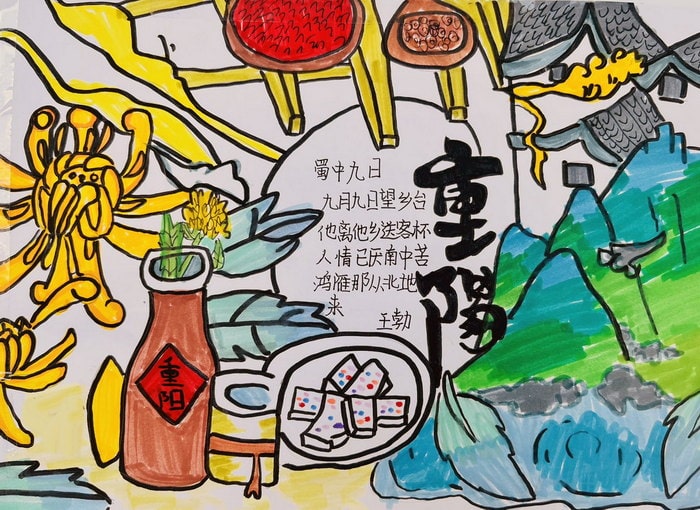 蜀中九日
九月九日望乡台
他离他乡送客杯
人情已厌南中苦
鸿雁那从北地
来
王勃
重陽
重阳